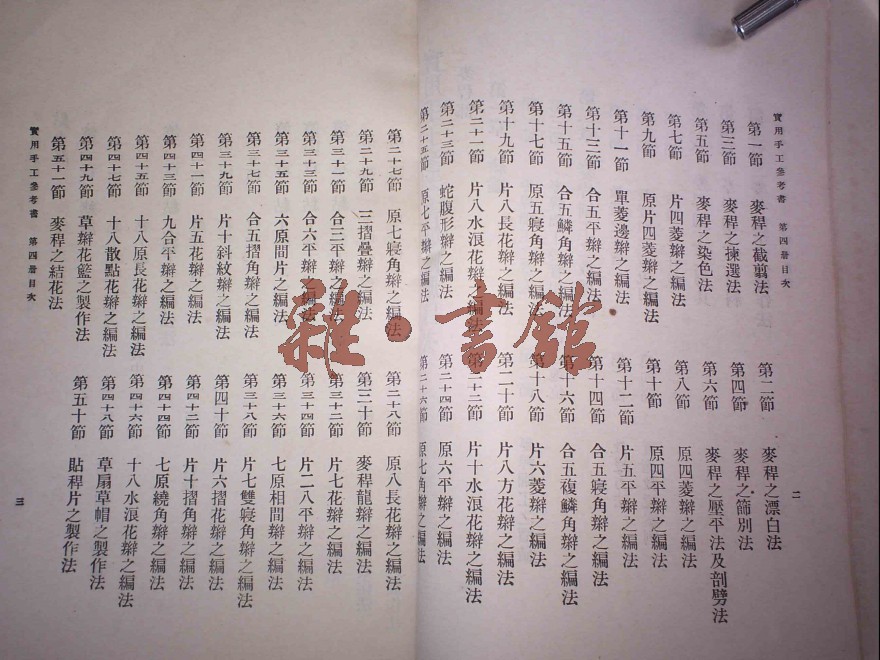 實用手工參考書 第四册目次
二
第一節 麥稈之截剪法
第二節 麥稈之漂白法
第三節 麥稈之揀選法
第四節 麥稈之篩別法
第五節 麥稈之染色法
第六節 麥稈之壓平法及剖劈法
第七節 片四菱辮之編法
第八節 原四菱辮之編法
第九節 原片四菱辮之編法
第十節 原四平辮之編法
第十一節 單菱邊辮之編法
第十二節 片五平辮之編法
第十三節 合五平辮之編法
第十四節 合五寢角辮之編法
第十五節 合五鱗角辮之編法
第十六節 合五複鱗角辮之編法
第十七節 原五寢角辮之編法
第十八節 片六菱辮之編法
第十九節 片八長花辮之編法
第二十節 片八方花辮之編法
第二十一節 片八水浪花辮之編法
第二十二節 片十水浪花辮之編法
第二十三節 蛇腹形辮之編法
第二十四節 原六平辮之編法
第二十五節 原七平辮之編法
第二十六節 原七角辮之編法
第二十七節 原七寢角辮之編法
第二十八節 原八長花辮之編法
第二十九節 三摺疊辮之編法
第三十節 麥稈龍辮之編法
第三十一節 合三平辮之編法
第三十二節 片七花辮之編法
第三十三節 合六平辮之編法
第三十四節 片二八平辮之編法
第三十五節 六原間片之編法
第三十六節 七原相間辮之編法
第三十七節 合五摺角辮之編法
第三十八節 片七雙寢角辮之編法
第三十九節 片十斜紋辮之編法
第四十節 片六摺花辮之編法
第四十一節 片五花辮之編法
第四十二節 片十摺角辮之編法
第四十三節 九合平辮之編法
第四十四節 七原繞角辮之編法
第四十五節 十八原長花辮之編法
第四十六節 十八水浪花辮之編法
第四十七節 十八散點花辮之編法
第四十八節 草扇草帽之製作法
第四十九節 草辮花籃之製作法
第五十節 貼稈片之製作法
第五十一節 麥稈之結花法
實用手工參考書 第四册目次
三
雜·書館